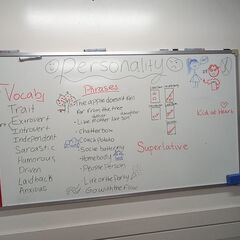 Personality
Vocab
Trait
Extrovert
Introvert
Independent
Sarcastic
Humorous
Driven
Laidback
Anxious
Phrases
The apple doesn't fall
far from the tree
daughter
- Like mother like son
- Chatterbox
- Couch potato
- Social butterfly
- Homebody
- Life of the Party
- Go with the flow
Superlative
Kid at Heart